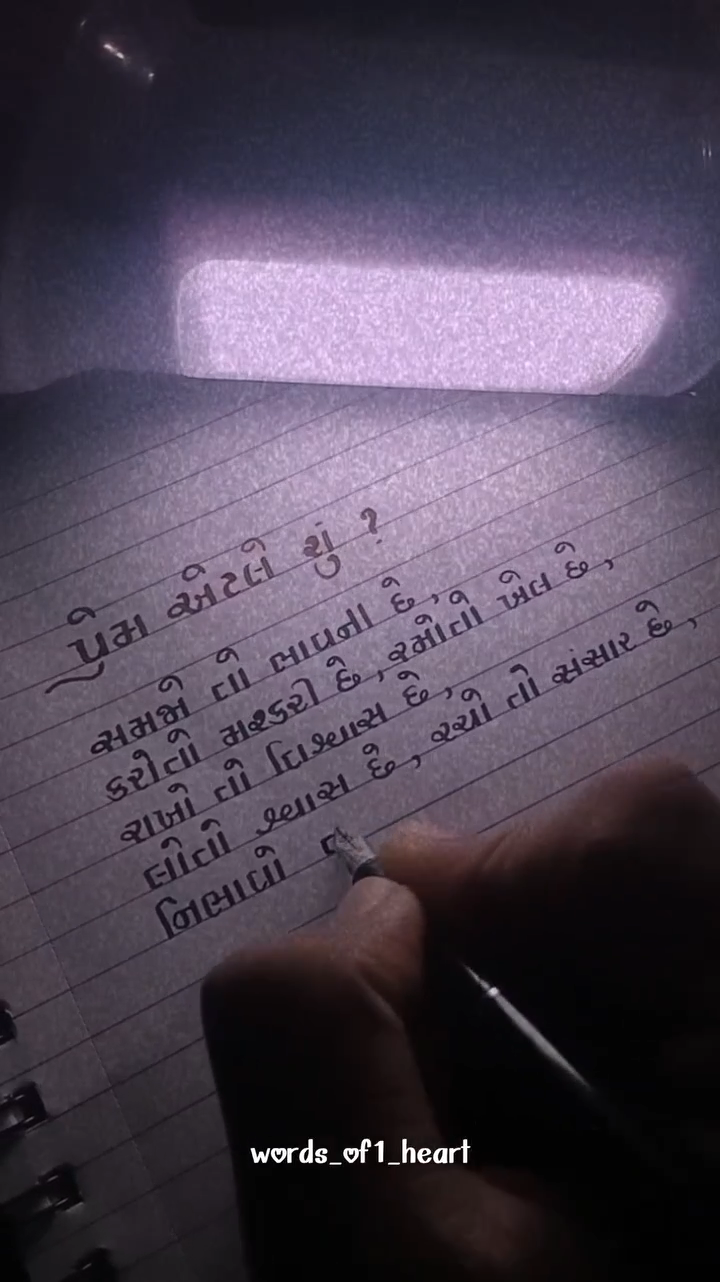 પ્રેમ એટલે શું ?
સમજો તો ભાવના છે,
કરોતો મશ્કરી છે, રમોતો ખેલ છે,
રાખો તો વિશ્વાસ છે,
લોતો શ્વાસ છે, રચો તો સંસાર છે,
નિભાવો
words_of1_heart